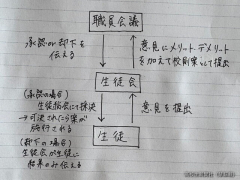 職員会議
承認か却下を
伝える
意見にメリット・デメリット
を加えて校則案として提出
生徒会
(承認の場合)
生徒総会にて採決
→可決されたら案が
施行される
意見を提出
生徒
(却下の場合)
生徒会が生徒に
結果のみ伝える